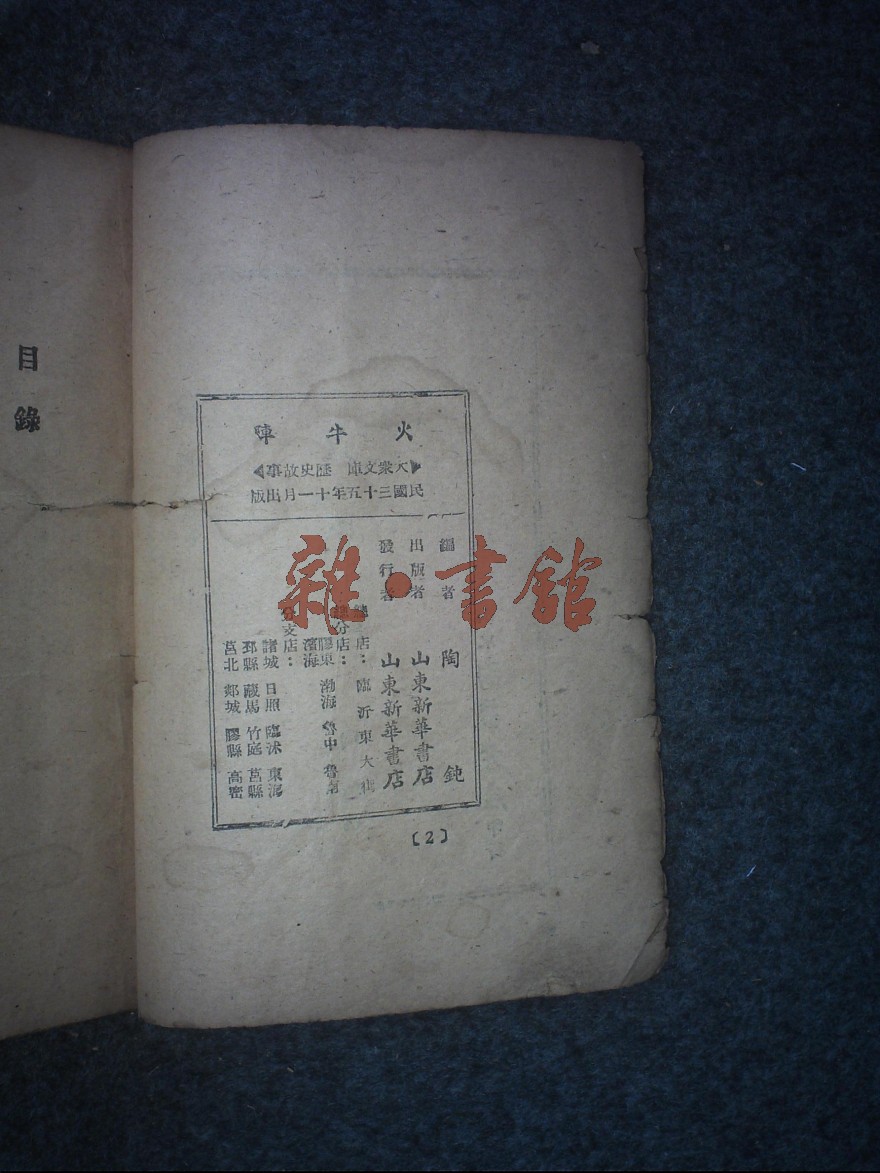 火牛陣
大衆文庫 歷史故事
民國三十五年十一月出版
編者 陶鈍
出版者 山東新華書店
發行者 山東新華書店
總店：臨沂東大街
總分店：膠東 渤海 魯中 魯南
濱海
分支店：
諸城 日照 臨沭 東海
邳縣 藏馬 竹庭 莒縣
莒北 郯城 膠縣 高密
〔2〕
目錄
雜·書館